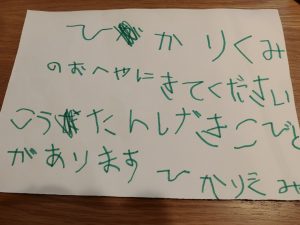 ひかりくみ
のおへやに きてください
こうたんげきこびと
があります ひかりえみ